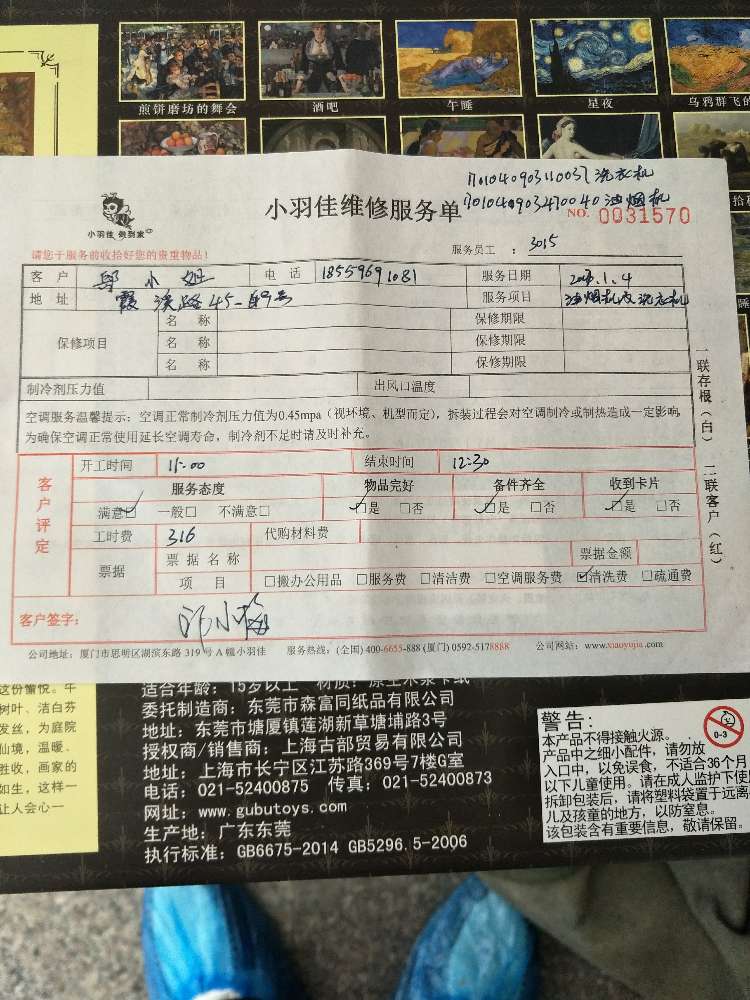 煎饼磨坊的舞会
酒吧
午睡
星夜
乌鸦群飞的
小羽佳 俱到家
小羽佳维修服务单
洗衣机
油烟机
NO. 0031570
请您于服务前收拾好您的贵重物品!
服务员工 : 3015
客户 邱小姐 电话 18559691081 服务日期 .1.4
地址 霞溪路45- 号 服务项目 油烟机及洗衣机
保修项目
名称 保修期限
名称 保修期限
名称 保修期限
制冷剂压力值 出风口温度
空调服务温馨提示: 空调正常制冷剂压力值为0.45mpa (视环境、机型而定), 拆装过程会对空调制冷或制热造成一定影响,
为确保空调正常使用延长空调寿命, 制冷剂不足时请及时补充。
一联存根(白) 二联客户(红)
客户评定
开工时间 11:00 结束时间 12:30
服务态度 物品完好 备件齐全 收到卡片
满意☑ 一般□ 不满意□ ☑是 □否 ☑是 □否 ☑是 □否
工时费 316 代购材料费
票据 票据名称 票据金额
项目 □搬办公用品 □服务费 □清洁费 □空调服务费 ☑清洗费 □疏通费
客户签字: 邱小梅
公司地址: 厦门市思明区湖滨东路 319 号 A 幢小羽佳 服务热线: (全国) 400-6655-888 (厦门) 0592-5178888 公司网站: www.xiaoyujia.com
这份愉悦。午
树叶、洁白芬
发丝，为庭院
仙境，温暖、
胜收，画家的
如生，这样一
让人会心一
适合年龄: 15岁以上 材质: 原生木浆卡纸
委托制造商: 东莞市森富同纸品有限公司
地址: 东莞市塘厦镇莲湖新草塘埔路3号
授权商/销售商: 上海古部贸易有限公司
地址: 上海市长宁区江苏路369号7楼G室
电话: 021-52400875 传真: 021-52400873
网址: www.gubutoys.com
生产地: 广东东莞
执行标准: GB6675-2014 GB5296.5-2006
警告:
0-3
本产品不得接触火源。
产品中之细小配件, 请勿放
入口中, 以免误食, 不适合36个月
以下儿童使用。请在成人监护下使
拆卸包装后, 请将塑料袋置于远离
儿及孩童的地方, 以防窒息。
该包装含有重要信息, 敬请保留。